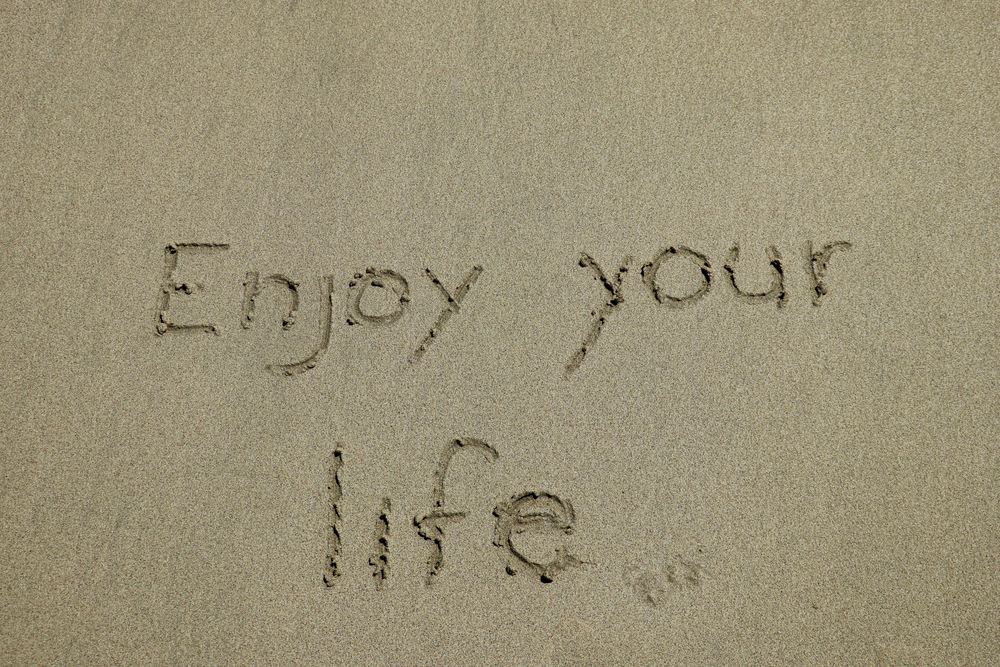 Enjoy your
life